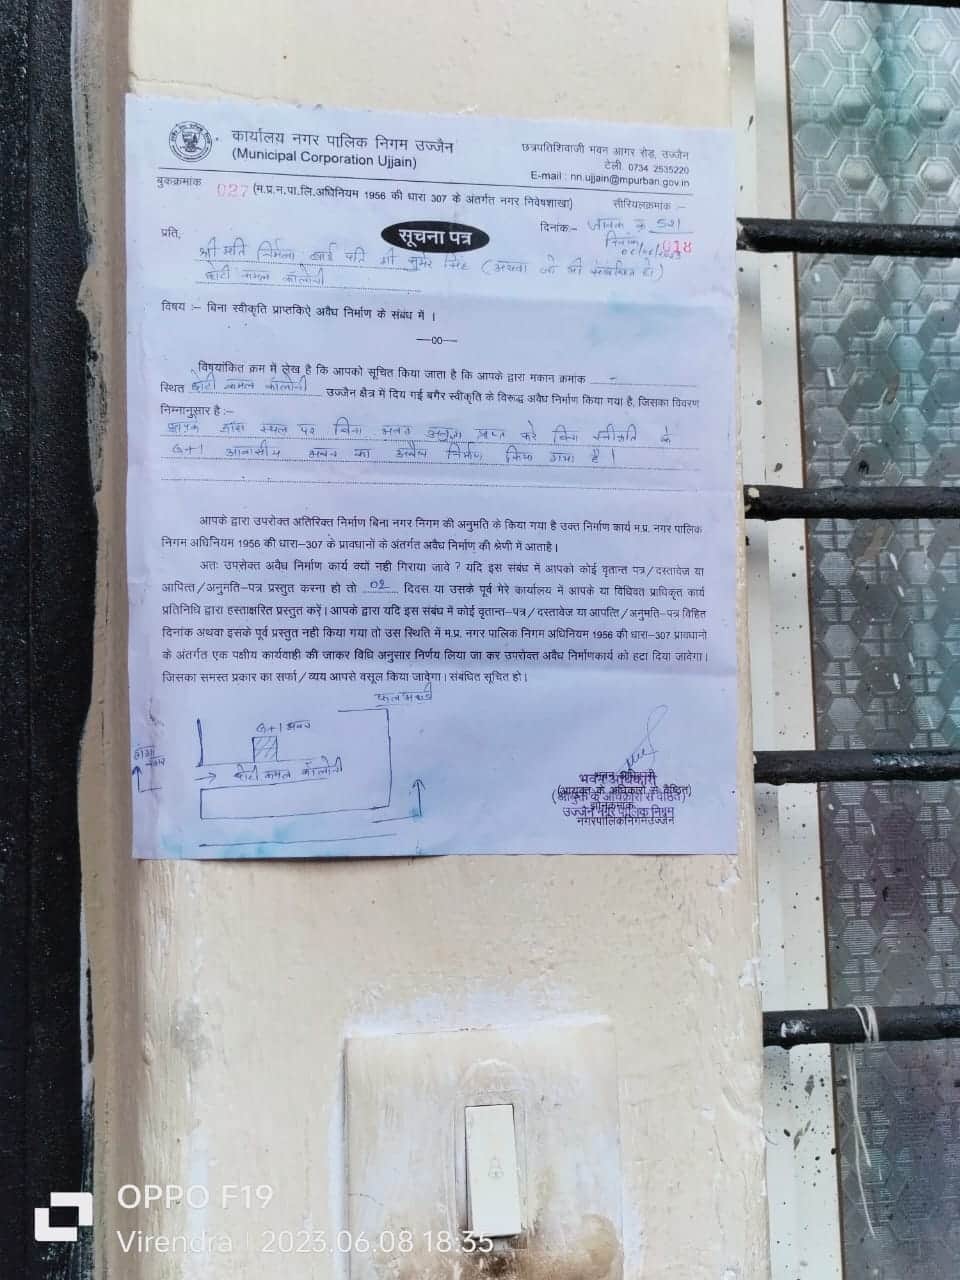 कार्यालय नगर पालिक निगम उज्जैन
(Municipal Corporation Ujjain)
छत्रपतिशिवाजी भवन आगर रोड, उज्जैन
टेली. 0734 2535220
E-mail : nn.ujjain@mpurban.gov.in
बुकक्रमांक 027 (म.प्र.न.पा.लि.अधिनियम 1956 की धारा 307 के अंतर्गत नगर निवेषशाखा) सीरियलक्रमांक :-
018
सूचना पत्र
दिनांक:- जावक क्र 521
दिनांक
प्रति,
श्री मति निर्मला बाई पति श्री सुमेर सिंह (अथवा जो भी संबंधित हो)
छोटी कमल कॉलोनी
विषय :- बिना स्वीकृति प्राप्तकिऐ अवैध निर्माण के संबंध में ।
—00—
विषयांकित क्रम में लेख है कि आपको सूचित किया जाता है कि आपके द्वारा मकान क्रमांक
स्थित छोटी कमल कॉलोनी उज्जैन क्षेत्र में दिय गई बगैर स्वीकृति के विरूद्ध अवैध निर्माण किया गया है, जिसका विवरण
निम्नानुसार है :-
आपके द्वारा स्थल पर बिना भवन अनुज्ञा प्राप्त करे बिना स्वीकृति के
G+1 आवासीय भवन का अवैध निर्माण किया गया है ।
आपके द्वारा उपरोक्त अतिरिक्त निर्माण बिना नगर निगम की अनुमति के किया गया है उक्त निर्माण कार्य म.प्र. नगर पालिक
निगम अधिनियम 1956 की धारा–307 के प्रावधानों के अंतर्गत अवैध निर्माण की श्रेणी में आताहै ।
अतः उपरोक्त अवैध निर्माण कार्य क्यों नही गिराया जावे ? यदि इस संबंध में आपको कोई वृतान्त पत्र/दस्तावेज या
आपित्त/अनुमति-पत्र प्रस्तुत करना हो तो 02 दिवस या उसके पूर्व मेरे कार्यालय में आपके या विधिवत प्राधिकृत कार्य
प्रतिनिधि द्वारा हस्ताक्षरित प्रस्तुत करें। आपके द्वारा यदि इस संबंध में कोई वृतान्त-पत्र/दस्तावेज या आपत्ति/अनुमति-पत्र विहित
दिनांक अथवा इसके पूर्व प्रस्तुत नही किया गया तो उस स्थिति में म.प्र. नगर पालिक निगम अधिनियम 1956 की धारा-307 प्रावधानो
के अंतर्गत एक पक्षीय कार्यवाही की जाकर विधि अनुसार निर्णय लिया जा कर उपरोक्त अवैध निर्माणकार्य को हटा दिया जावेगा।
जिसका समस्त प्रकार का सर्फा/व्यय आपसे वसूल किया जावेगा। संबंधित सूचित हो।
फलमण्डी
G+1 भवन
छोटी कमल कॉलोनी
भवन अधिकारी
(आयुक्त के अधिकारों से वेष्ठित)
उज्जैन नगर पालिक निगम
नगरपालिकनिगमउज्जैन
OPPO F19
Virendra | 2023.06.08 18:35